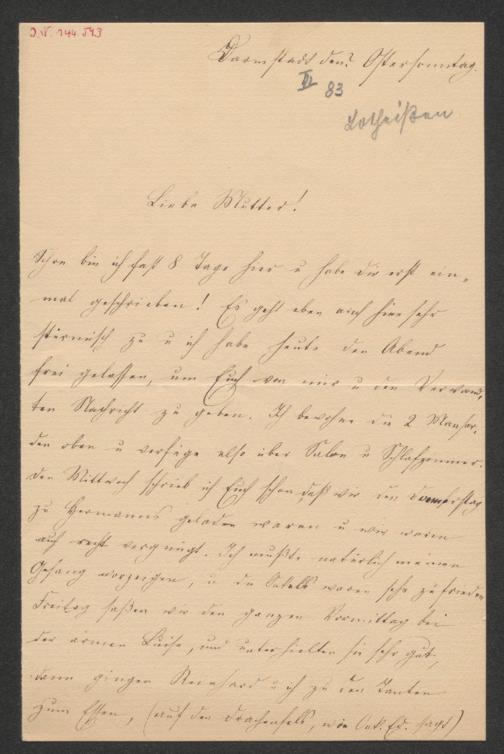 I.N. 144.593
Darmstadt den? Ostersonntag
III 83
Lotheißen
Liebe Mutter!
Schon bin ich fast 8 Tage hier u habe dir erst ein-
mal geschrieben! Es geht eben auch hier sehr
stürmisch zu u ich habe heute den Abend
frei gelassen, um Euch von mir u den Verwand-
ten Nachricht zu geben. Ich bewohne die 2 Mansar-
den oben u verfüge also über Salon u Schlafzimmer.
Den Mittwoch schrieb ich Euch schon, daß wir den Donnerstag
zu Hermanns geladen waren u wir waren
auch recht vergnügt. Ich mußte natürlich meinen
Gesang vorzeigen, u die waren sehr zufrieden
Freitag saßen wir den ganzen Vormittag bei
der armen Luise, und unterhielten sie sehr gut,
dann gingen Reinhard u ich zu den Tanten
zum Essen, (auf den Drachenfels, wie Onk. Ed. sagt)